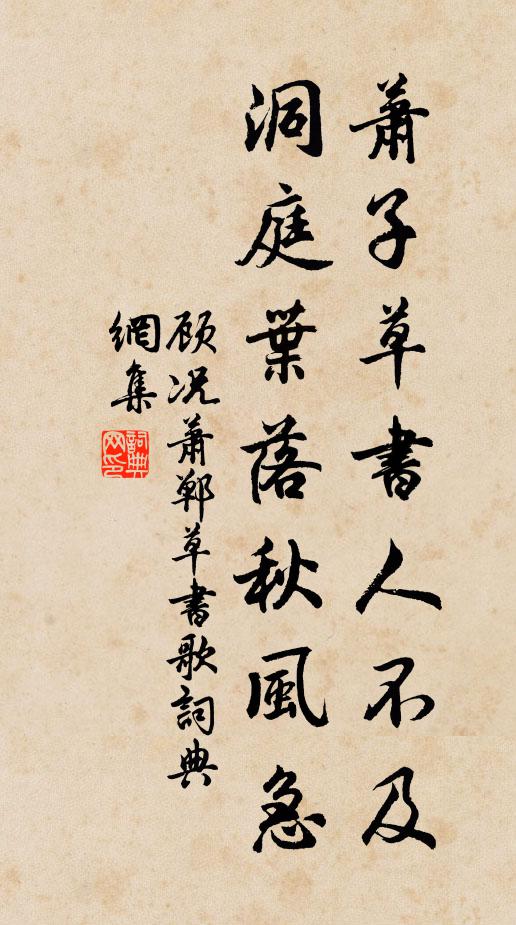 蕭子草書人不及
洞庭葉落秋風急
顧况蕭鄆草書歌詞典
網集
詞典
网印